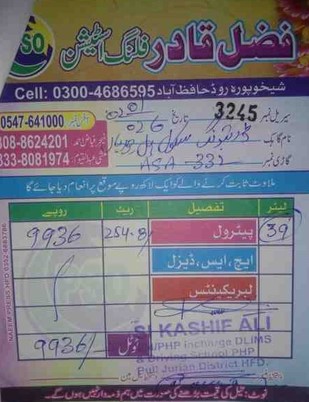 PSO
فضل قادر فلنگ اسٹیشن
شیخوپورہ روڈ حافظ آباد Cell: 0300-4686595
0547-641000
سیریل نمبر 3245 تاریخ
308-8624201
نام گاہک
333-8081974
گاڑی نمبر ASA-332
ملاوٹ ثابت کرنے والے کو ایک لاکھ روپے موقع پر انعام دیا جائے گا
لیٹر تفصیل ریٹ روپے
39 پیٹرول 254.8/ 9936
ایچ، ایس، ڈیزل
لبریکینٹس
SI KASHIF ALI
PHP Incharge DLIMS
& Driving School PHP
Pull Jurian District HFD.
ٹوٹل 9936/
نوٹ: تیل کی قیمت بڑھنے کی صورت میں ہم ذمہ دار نہیں ہوں گے۔